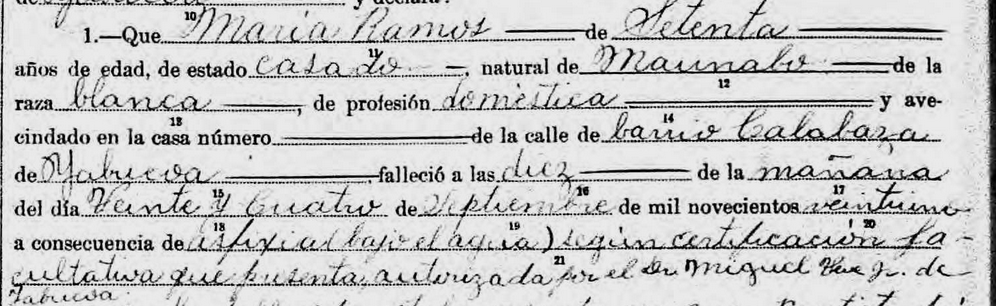 y declara:
1.—Que 10 Maria Ramos de Setenta
años de edad, de estado casado 11, natural de Maunabo de la
raza blanca, de profesión doméstica 12 y ave-
cindado en la casa número 13 de la calle de 14 barrio Calabaza
de Yabucoa falleció a las diez de la mañana
del día Veinte y Cuatro 15 de Septiembre 16 de mil novecientos 17 veintiuno
a consecuencia de 18 asfixia (bajo el agua) 19 según certificación 20 fa-
cultativa que presenta, autorizada 21 por el Dr. Miguel Jr. de
Yabucoa.